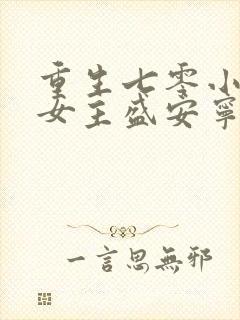 重生七零小
女主盛安寧
一言思無邪